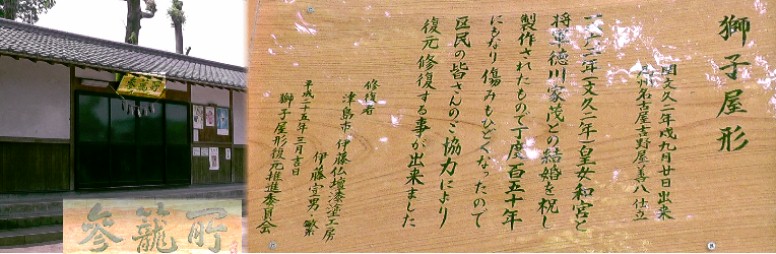 獅子屋形
文久二年戌九月廿日出来
尾州名古屋吉野屋善八仕立
一八六二年(文久二年)皇女和宮と
将軍徳川家茂との結婚を祝し
製作されたもので丁度百五十年
にもなり傷みもひどくなったので
区民の皆さんのご協力により
復元修復する事が出来ました
修復者
津島市 伊藤仏壇漆塗工房
伊藤宣男・繁
平成二十五年三月吉日
獅子屋形復元推進委員会
参籠所
參籠所